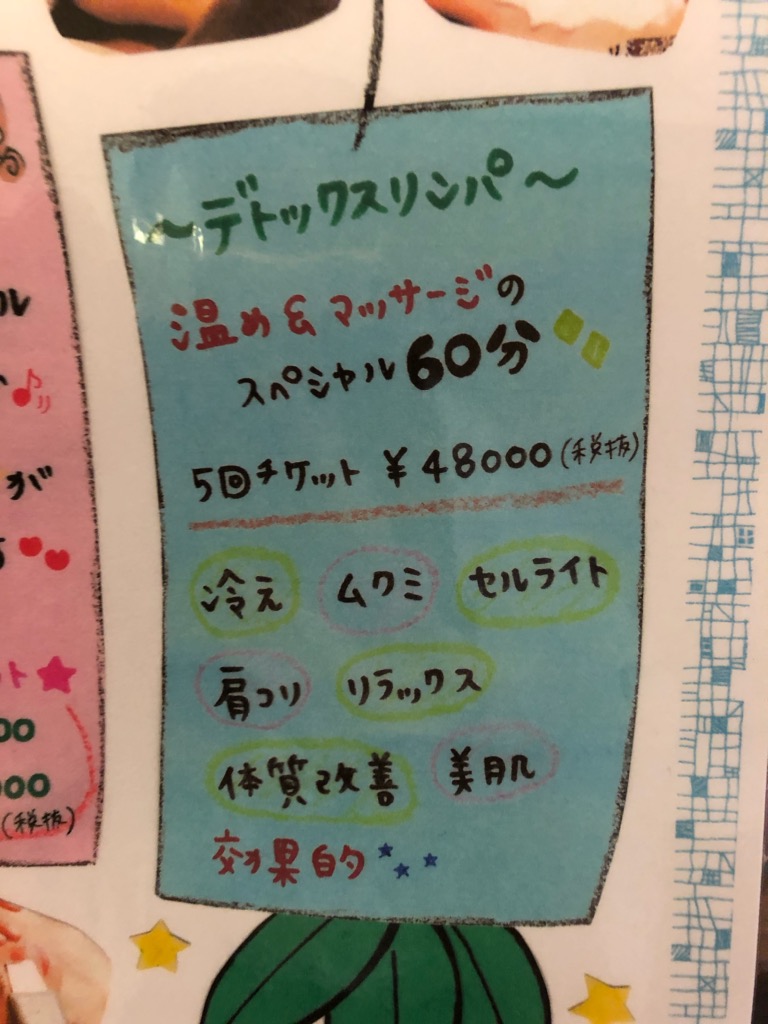 ~デトックスリンパ~
温め&マッサージの
スペシャル60分
5回チケット ¥48000(税抜)
冷え ムクミ セルライト
肩コリ リラックス
体質改善 美肌
効果的
ル
が
ト
00
000
(税抜)